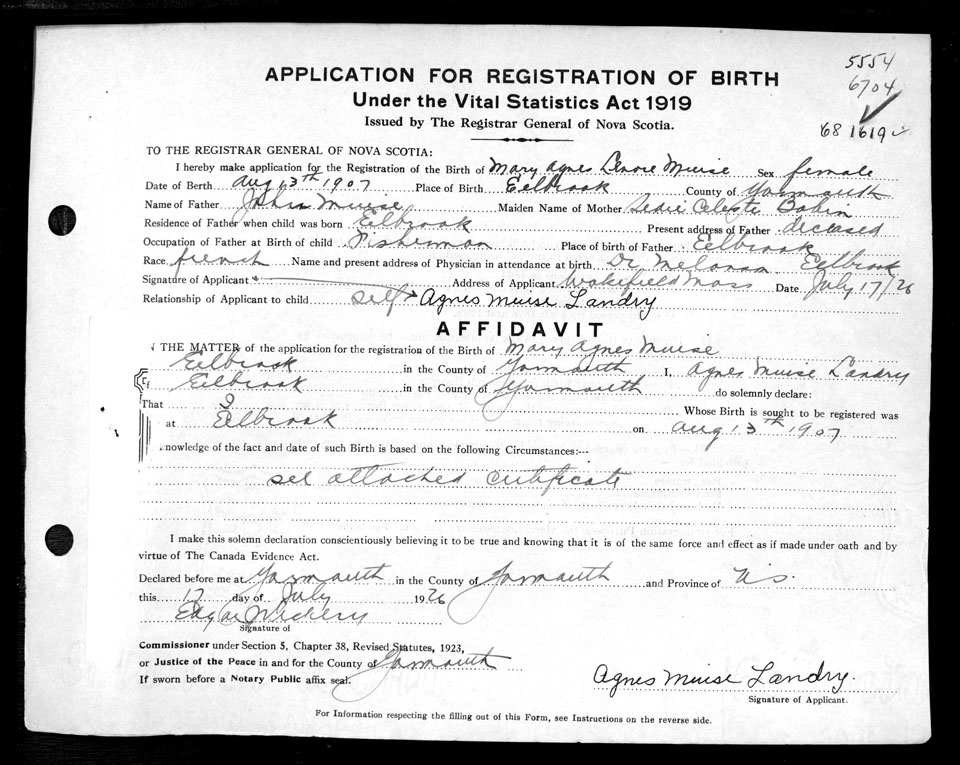 5554
6704
68 1619
APPLICATION FOR REGISTRATION OF BIRTH
Under the Vital Statistics Act 1919
Issued by The Registrar General of Nova Scotia.
TO THE REGISTRAR GENERAL OF NOVA SCOTIA:
I hereby make application for the Registration of the Birth of Mary Agnes Lenore Muise Sex female
Date of Birth Aug 13th 1907 Place of Birth Eelbrook County of Yarmouth
Name of Father John Muise Maiden Name of Mother Celeste
Residence of Father when child was born Eelbrook Present address of Father deceased
Occupation of Father at Birth of child Fisherman Place of birth of Father Eelbrook
Race french Name and present address of Physician in attendance at birth Dr Eelbrook
Signature of Applicant Address of Applicant Wakefield Mass Date July 17/26
Relationship of Applicant to child self Agnes Muise Landry
AFFIDAVIT
THE MATTER of the application for the registration of the Birth of Mary Agnes Muise
Eelbrook in the County of Yarmouth I, Agnes Muise Landry
of Eelbrook in the County of Yarmouth do solemnly declare:
That I Whose Birth is sought to be registered was
at Eelbrook on Aug 13th 1907
nowledge of the fact and date of such Birth is based on the following Circumstances:---
see attached certificate
I make this solemn declaration conscientiously believing it to be true and knowing that it is of the same force and effect as if made under oath and by
virtue of The Canada Evidence Act.
Declared before me at Yarmouth in the County of Yarmouth and Province of N.S.
this 17 day of July 1926
Edgar Vickery
Signature of
Commissioner under Section 5, Chapter 38, Revised Statutes, 1923,
or Justice of the Peace in and for the County of Yarmouth
If sworn before a Notary Public affix seal.
Agnes Muise Landry.
Signature of Applicant.
For Information respecting the filling out of this Form, see Instructions on the reverse side.